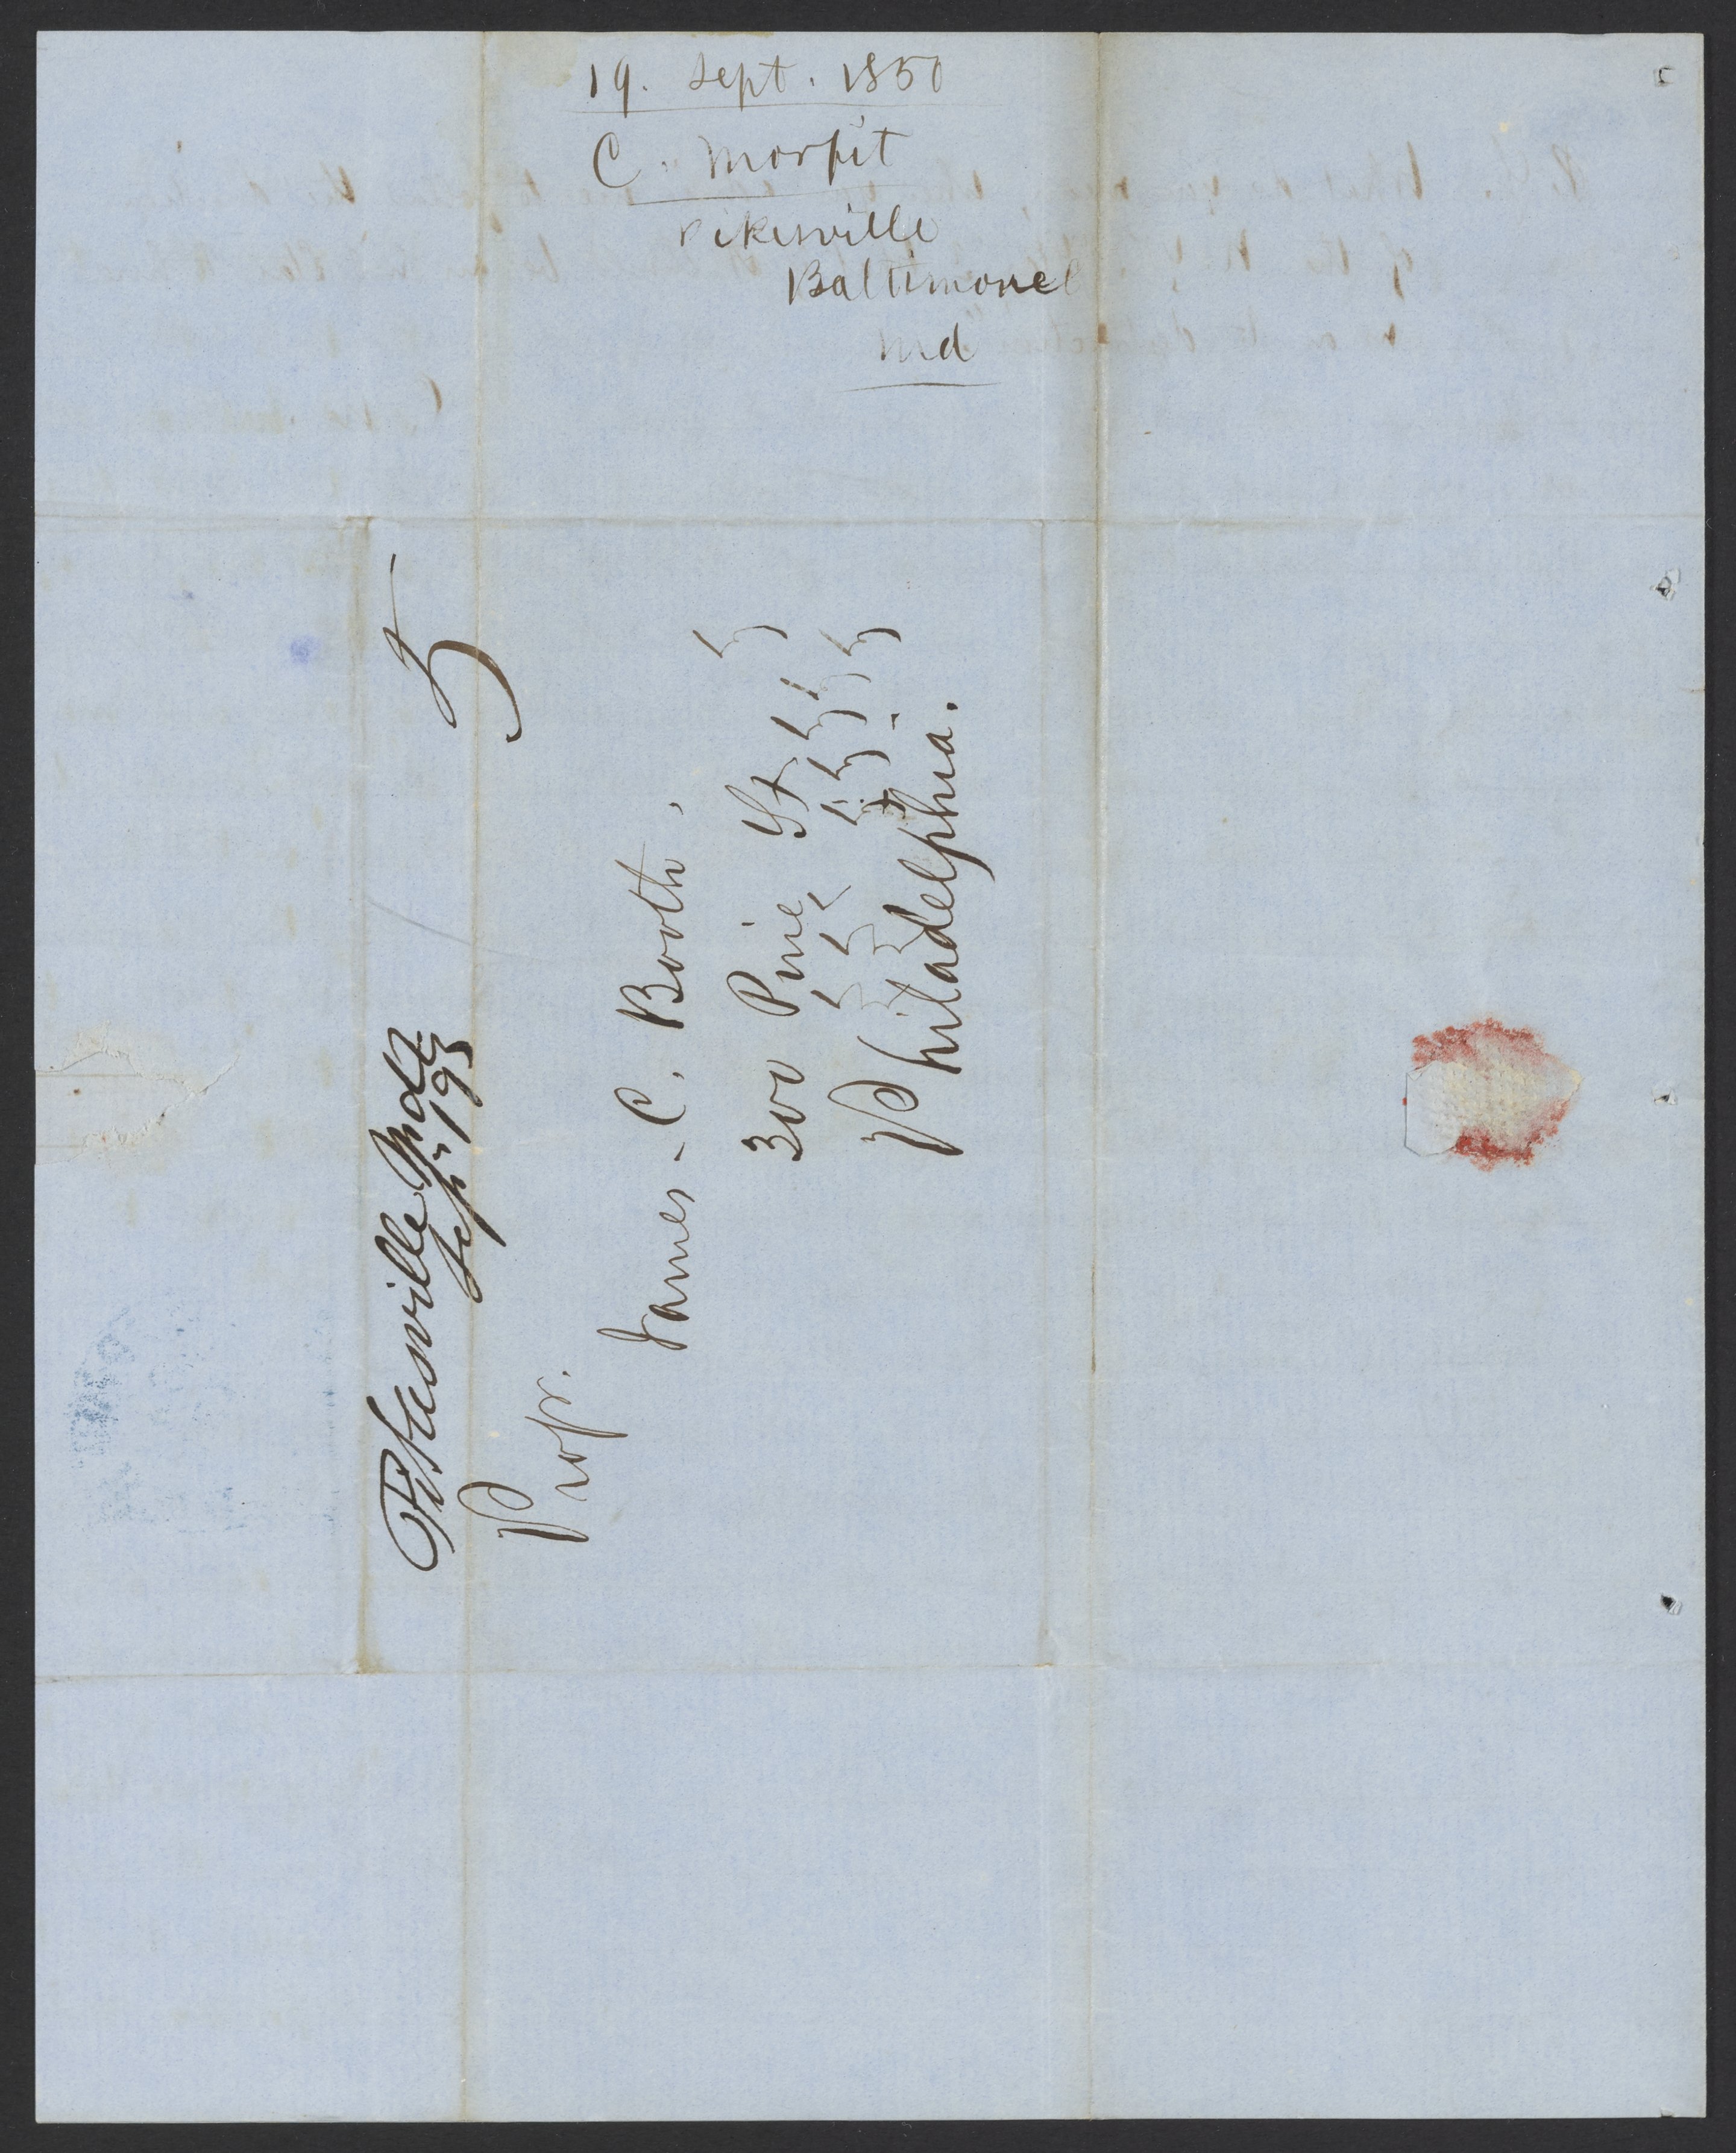 19. Sept. 1850
C. Morfit
Pikesville
Baltimore
Md
Pikesville Md
Sept 19
5
Prof.
James C. Booth,
300 Pine St
Philadelphia.